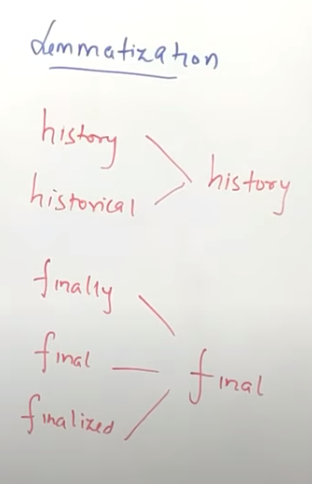 Lemmatization
history
historical
history
finally
final
final
finalized